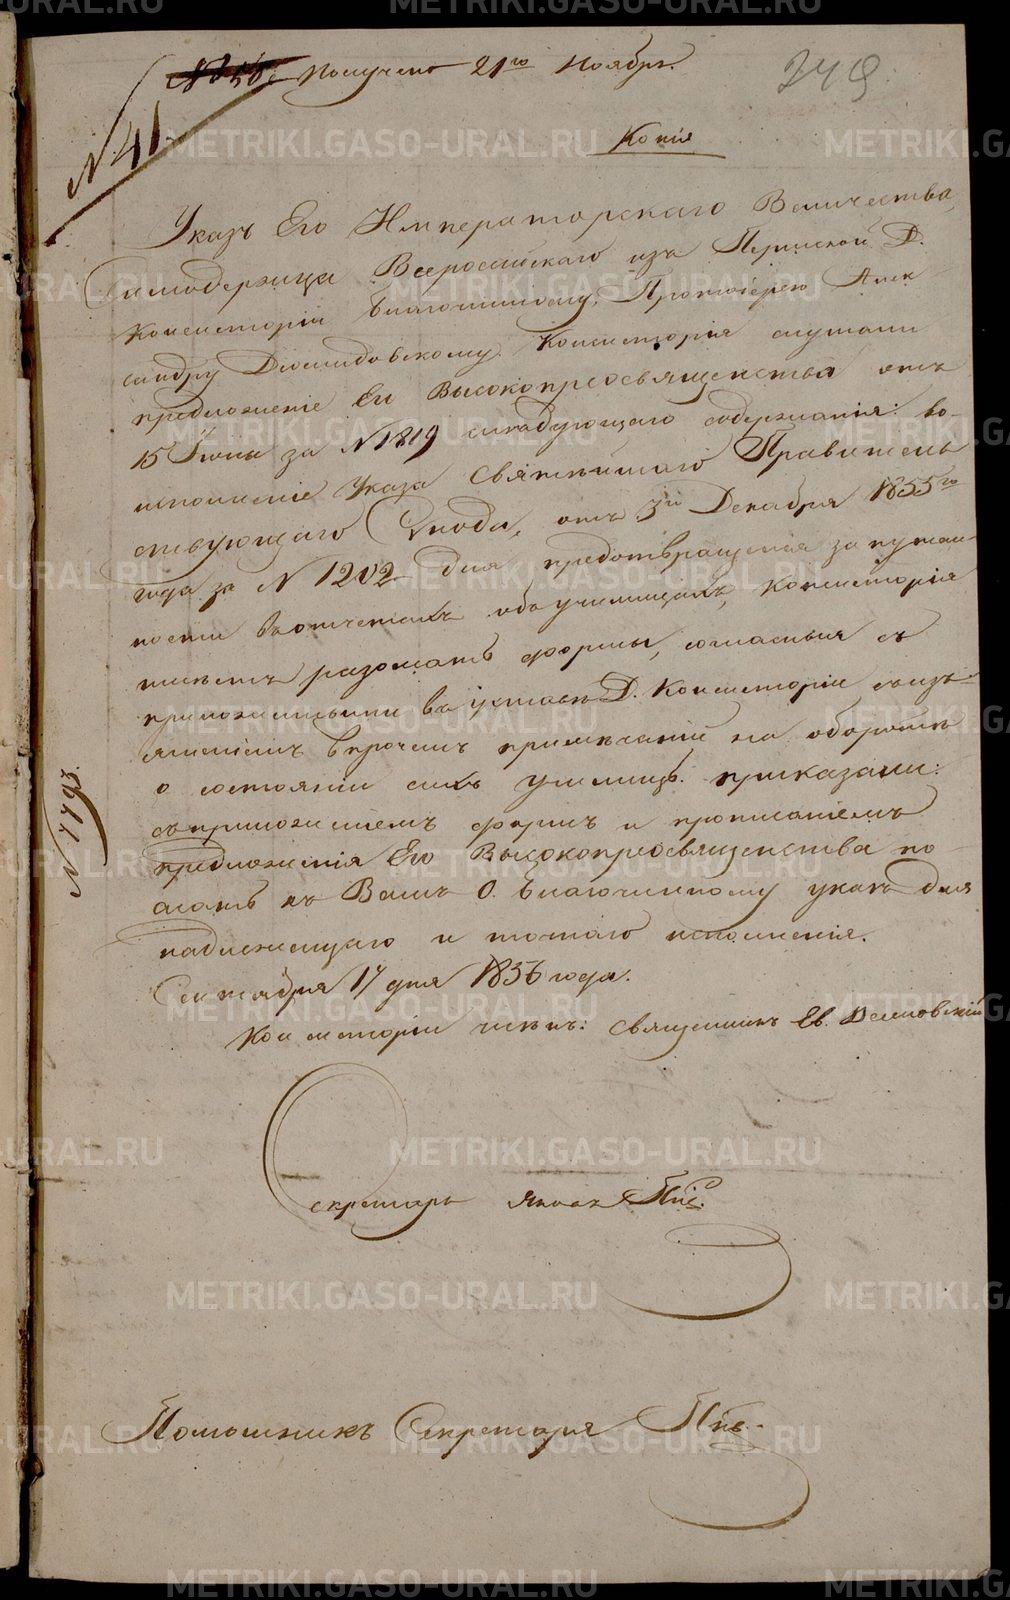 Получено 21го Ноября.
249
N 41
Копія
Указъ Его Императорскаго Величества,
Самодержца Всероссійскаго изъ Пермской Д.
Консисторіи Благочинному, Протоіерею Алек
сандру Діомидовскому. Консисторія слушали
предложеніе Его Высокопреосвященства отъ
15 Іюня за N 1819 слѣдующаго содержанія: во
исполненіе Указа Святѣйшаго Правитель
ствующаго Сνнода, отъ 3го Декабря 1855го
года за N 1202 для предотвращенія запутан-
ности въ отчетахъ объ училищахъ, Консисторія
имѣетъ разослать формы, согласныя съ
приложенными въ уставѣ Д. Консисторіи съ изъ-
ятіемъ впрочемъ примѣчаній на оборотѣ
о состояніи сихъ училищъ. приказали:
съ приложеніемъ формъ и прописаніемъ
предложенія Его Высокопреосвященства по-
слать къ Вамъ О. Благочинному указъ для
надлежащаго и точнаго исполненія.
Сентября 17 дня 1856 года.
N 7793.
Консисторіи членъ: Священникъ Ев.
Секретарь Яковъ
Помошникъ Секретаря
METRIKI.GASO-URAL.RU